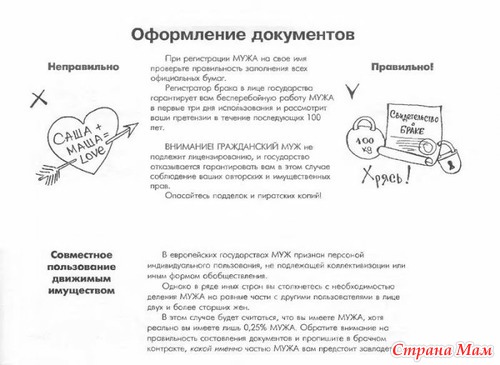 Оформление документов
Неправильно
При регистрации МУЖА на свое имя
проверьте правильность заполнения всех
официальных бумаг.
Регистратор брака в лице государства
гарантирует вам бесперебойную работу МУЖА
в первые три дня использования и рассмотрит
ваши претензии в течение последующих 100
лет.
ВНИМАНИЕ! ГРАЖДАНСКИЙ МУЖ не
подлежит лицензированию, и государство
отказывается гарантировать вам в этом случае
соблюдение ваших авторских и имущественных
прав.
Опасайтесь подделок и пиратских копий!
Правильно!
САША +
МАША =
= Love
Свидетельство
о
БРАКЕ
100
кг
Хрясь!
Совместное
пользование
движимым
имуществом
В европейских государствах МУЖ признан персоной
индивидуального пользования, не подлежащей коллективизации или
иным формам обобществления.
Однако в ряде иных стран вы столкнетесь с необходимостью
деления МУЖА на равные части с другими пользователями в лице
двух и более старших жен.
В этом случае будет считаться, что вы имеете МУЖА, хотя
реально вы имеете лишь 0,25% МУЖА. Обратите внимание на
правильность составления документов и пропишите в брачном
контракте, какой именно частью МУЖА вам предстоит завладе
Страна Мам